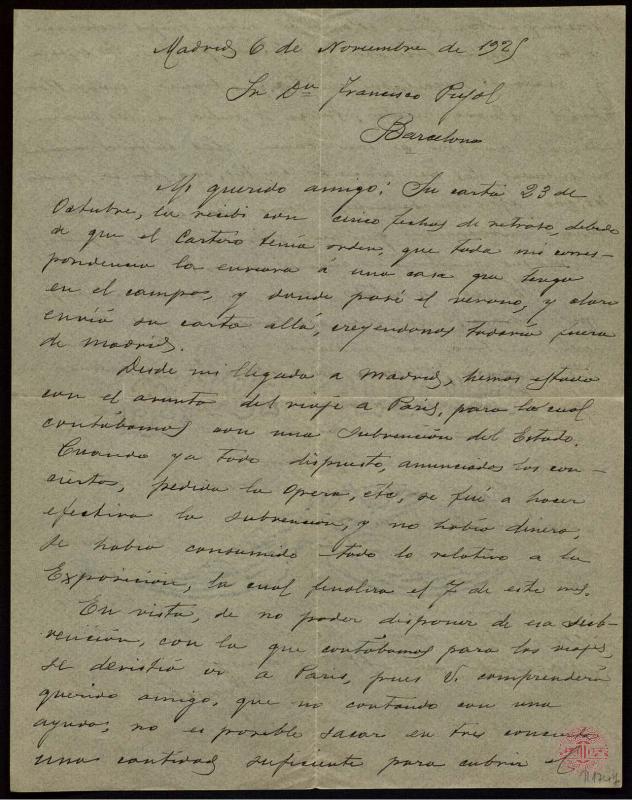 Madrid 6 de Noviembre de 1925
Sr Dn Francisco Pujol
Barcelona
Mi querido amigo: Su carta 23 de
Octubre, la recibi con cinco fechas de retraso, debido
a que el Cartero tenia orden, que toda mi corres-
pondencia la enviara á una casa que tengo
en el campo, y donde pasé el verano, y claro
envió su carta allá, creyendonos todavia fuera
de Madrid.
Desde mi llegada a Madrid, hemos estado
con el asunto del viaje a Paris, para lo cual
contábamos con una subvención del Estado.
Cuando ya todo dispuesto, anunciados los con-
ciertos, pedida la Opera, etc, se fué a hacer
efectiva la subvención, y no habia dinero,
se habia consumido todo lo relativo a la
Exposición, la cual finaliza el 7 de este mes.
En vista, de no poder disponer de esa sub-
vención, con la que contábamos para los viajes,
se desistió ir a Paris, pues V. comprenderá
querido amigo, que no contando con una
ayuda, no es posible sacar en tres conciertos
una cantidad suficiente para cubrir el